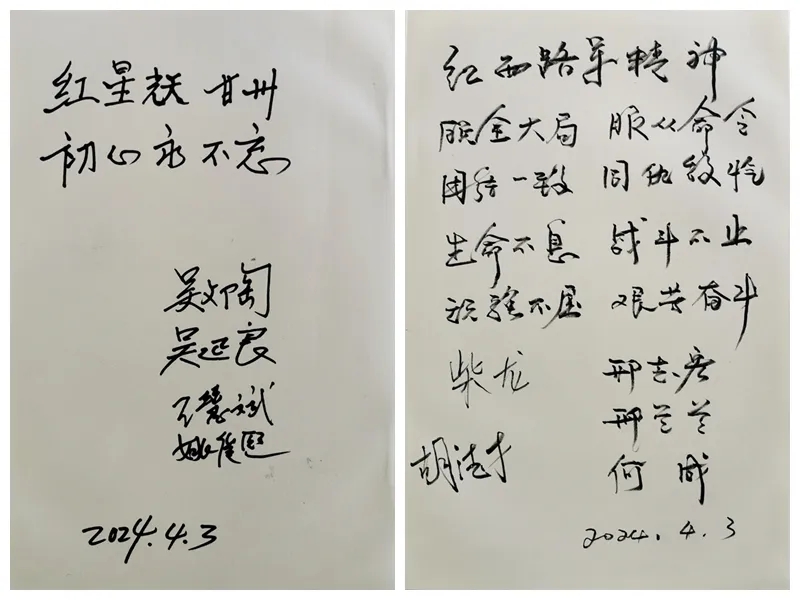 红星 甘州
初心永不忘
吴 陶
吴延良
王慧斌
姚
2024.4.3
红西路军精神
顾全大局 服从命令
团结一致 同仇敌忾
生命不息 战斗不止
顽强不屈 艰苦奋斗
柴龙 邢志
邢兰兰
胡 才 何成
2024.4.3